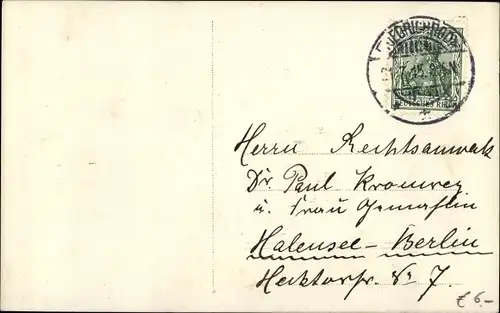 FRIEDRICHRODA
15.
DEUTSCHES REICH
Herrn Rechtsanwalt
Dr. Paul Kromrey
u. Frau Gemahlin
Halensee-Berlin
Hecktorstr. No 7.
€ 6.-